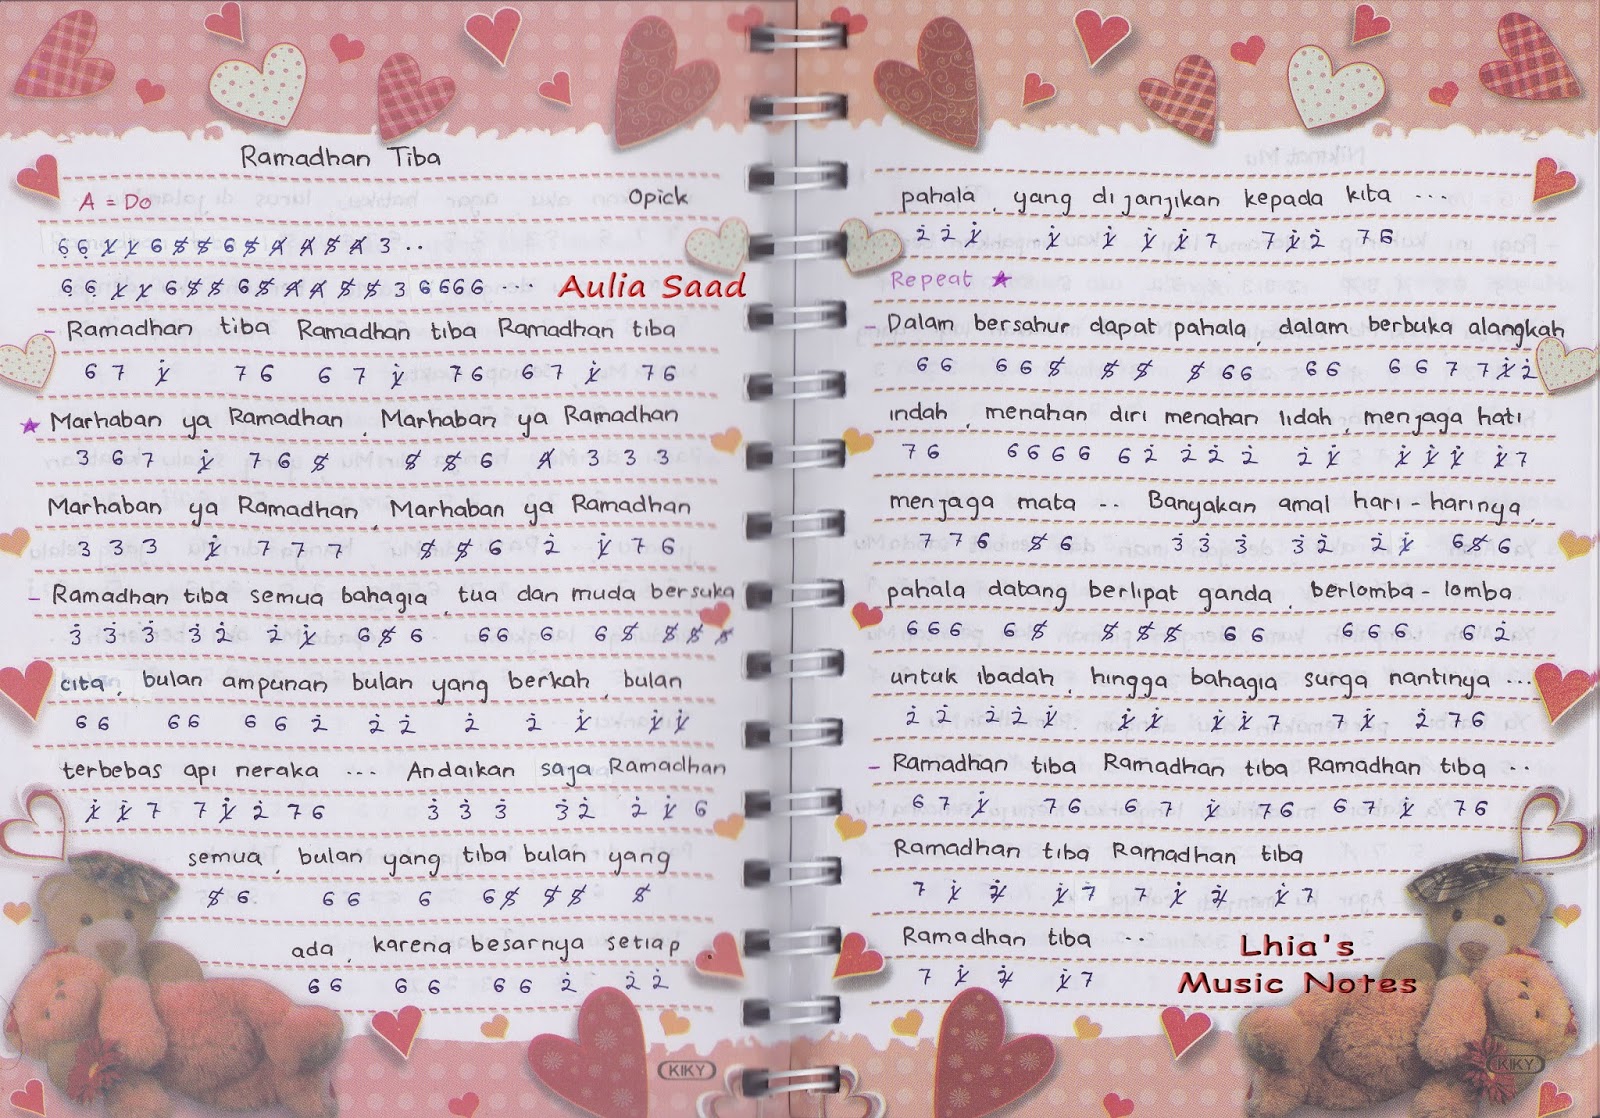 Ramadhan Tiba
A = Do Opick
6̣ 6̣ 1̸ 1̸ 6 5̸ 5̸ 6 5̸ 4̸ 4̸ 5̸ 4̸ 3 ..
6̣ 6̣ 1̸ 1̸ 6 5̸ 5̸ 6 5̸ 4̸ 4̸ 5̸ 5̸ 3 6 6 6 6 ...
Aulia Saad
- Ramadhan tiba Ramadhan tiba Ramadhan tiba
6 7 1̸̇ 7 6 6 7 1̸̇ 7 6 6 7 1̸̇ 7 6
★ Marhaban ya Ramadhan, Marhaban ya Ramadhan
3 6 7 1̸̇ 7 6 5̸ 5̸ 5̸ 6 4̸ 3 3 3
Marhaban ya Ramadhan, Marhaban ya Ramadhan
3 3 3 1̸̇ 7 7 7 5̸ 5̸ 6 2̇ 1̸̇ 7 6
- Ramadhan tiba semua bahagia, tua dan muda bersuka
3̇ 3̇ 3̇ 3̇ 2̇ 2̇ 1̸̇ 6 5̸ 6 6 6 6 6 5̸ 5̸ 5̸ 5̸
cita, bulan ampunan bulan yang berkah, bulan
6 6 6 6 6 6 2̇ 2̇ 2̇ 2̇ 2̇ 1̸̇ 1̸̇ 1̸̇
terbebas api neraka ... Andaikan saja Ramadhan
1̸̇ 1̸̇ 7 7 1̸̇ 2̇ 7 6 3̇ 3̇ 3̇ 3̇ 2̇ 2̇ 1̸̇ 6
semua, bulan yang tiba bulan yang
5̸ 6 6 6 6 6 5̸ 5̸ 5̸ 5̸
ada, karena besarnya setiap
6 6 6 6 6 6 2̇ 2̇ 2̇
KIKY
pahala, yang dijanjikan kepada kita ...
2̇ 2̇ 1̸̇ 1̸̇ 1̸̇ 1̸̇ 1̸̇ 7 7 1̸̇ 2̇ 7 6
Repeat ★
- Dalam bersahur dapat pahala, dalam berbuka alangkah
6 6 6 6 5̸ 5̸ 5̸ 5̸ 6 6 6 6 6 6 7 7 1̸̇ 2̇
indah, menahan diri menahan lidah, menjaga hati
7 6 6 6 6 6 6 2̇ 2̇ 2̇ 2̇ 2̇ 1̸̇ 1̸̇ 1̸̇ 1̸̇ 1̸̇ 7
menjaga mata .. Banyakan amal hari-harinya,
7 7 6 5̸ 6 3̇ 3̇ 3̇ 3̇ 2̇ 2̇ 1̸̇ 6 5̸ 6
pahala datang berlipat ganda, berlomba-lomba
6 6 6 6 5̸ 5̸ 5̸ 5̸ 6 6 6 6 6 6 2̇
untuk ibadah, hingga bahagia surga nantinya ...
2̇ 2̇ 2̇ 2̇ 1̸̇ 1̸̇ 1̸̇ 1̸̇ 1̸̇ 7 7 1̸̇ 2̇ 7 6
- Ramadhan tiba Ramadhan tiba Ramadhan tiba ..
6 7 1̸̇ 7 6 6 7 1̸̇ 7 6 6 7 1̸̇ 7 6
Ramadhan tiba Ramadhan tiba
7 1̸̇ 2̸̇ 1̸̇ 7 7 1̸̇ 2̸̇ 1̸̇ 7
Ramadhan tiba ..
7 1̸̇ 2̸̇ 1̸̇ 7
Lhia's
Music Notes
KIKY